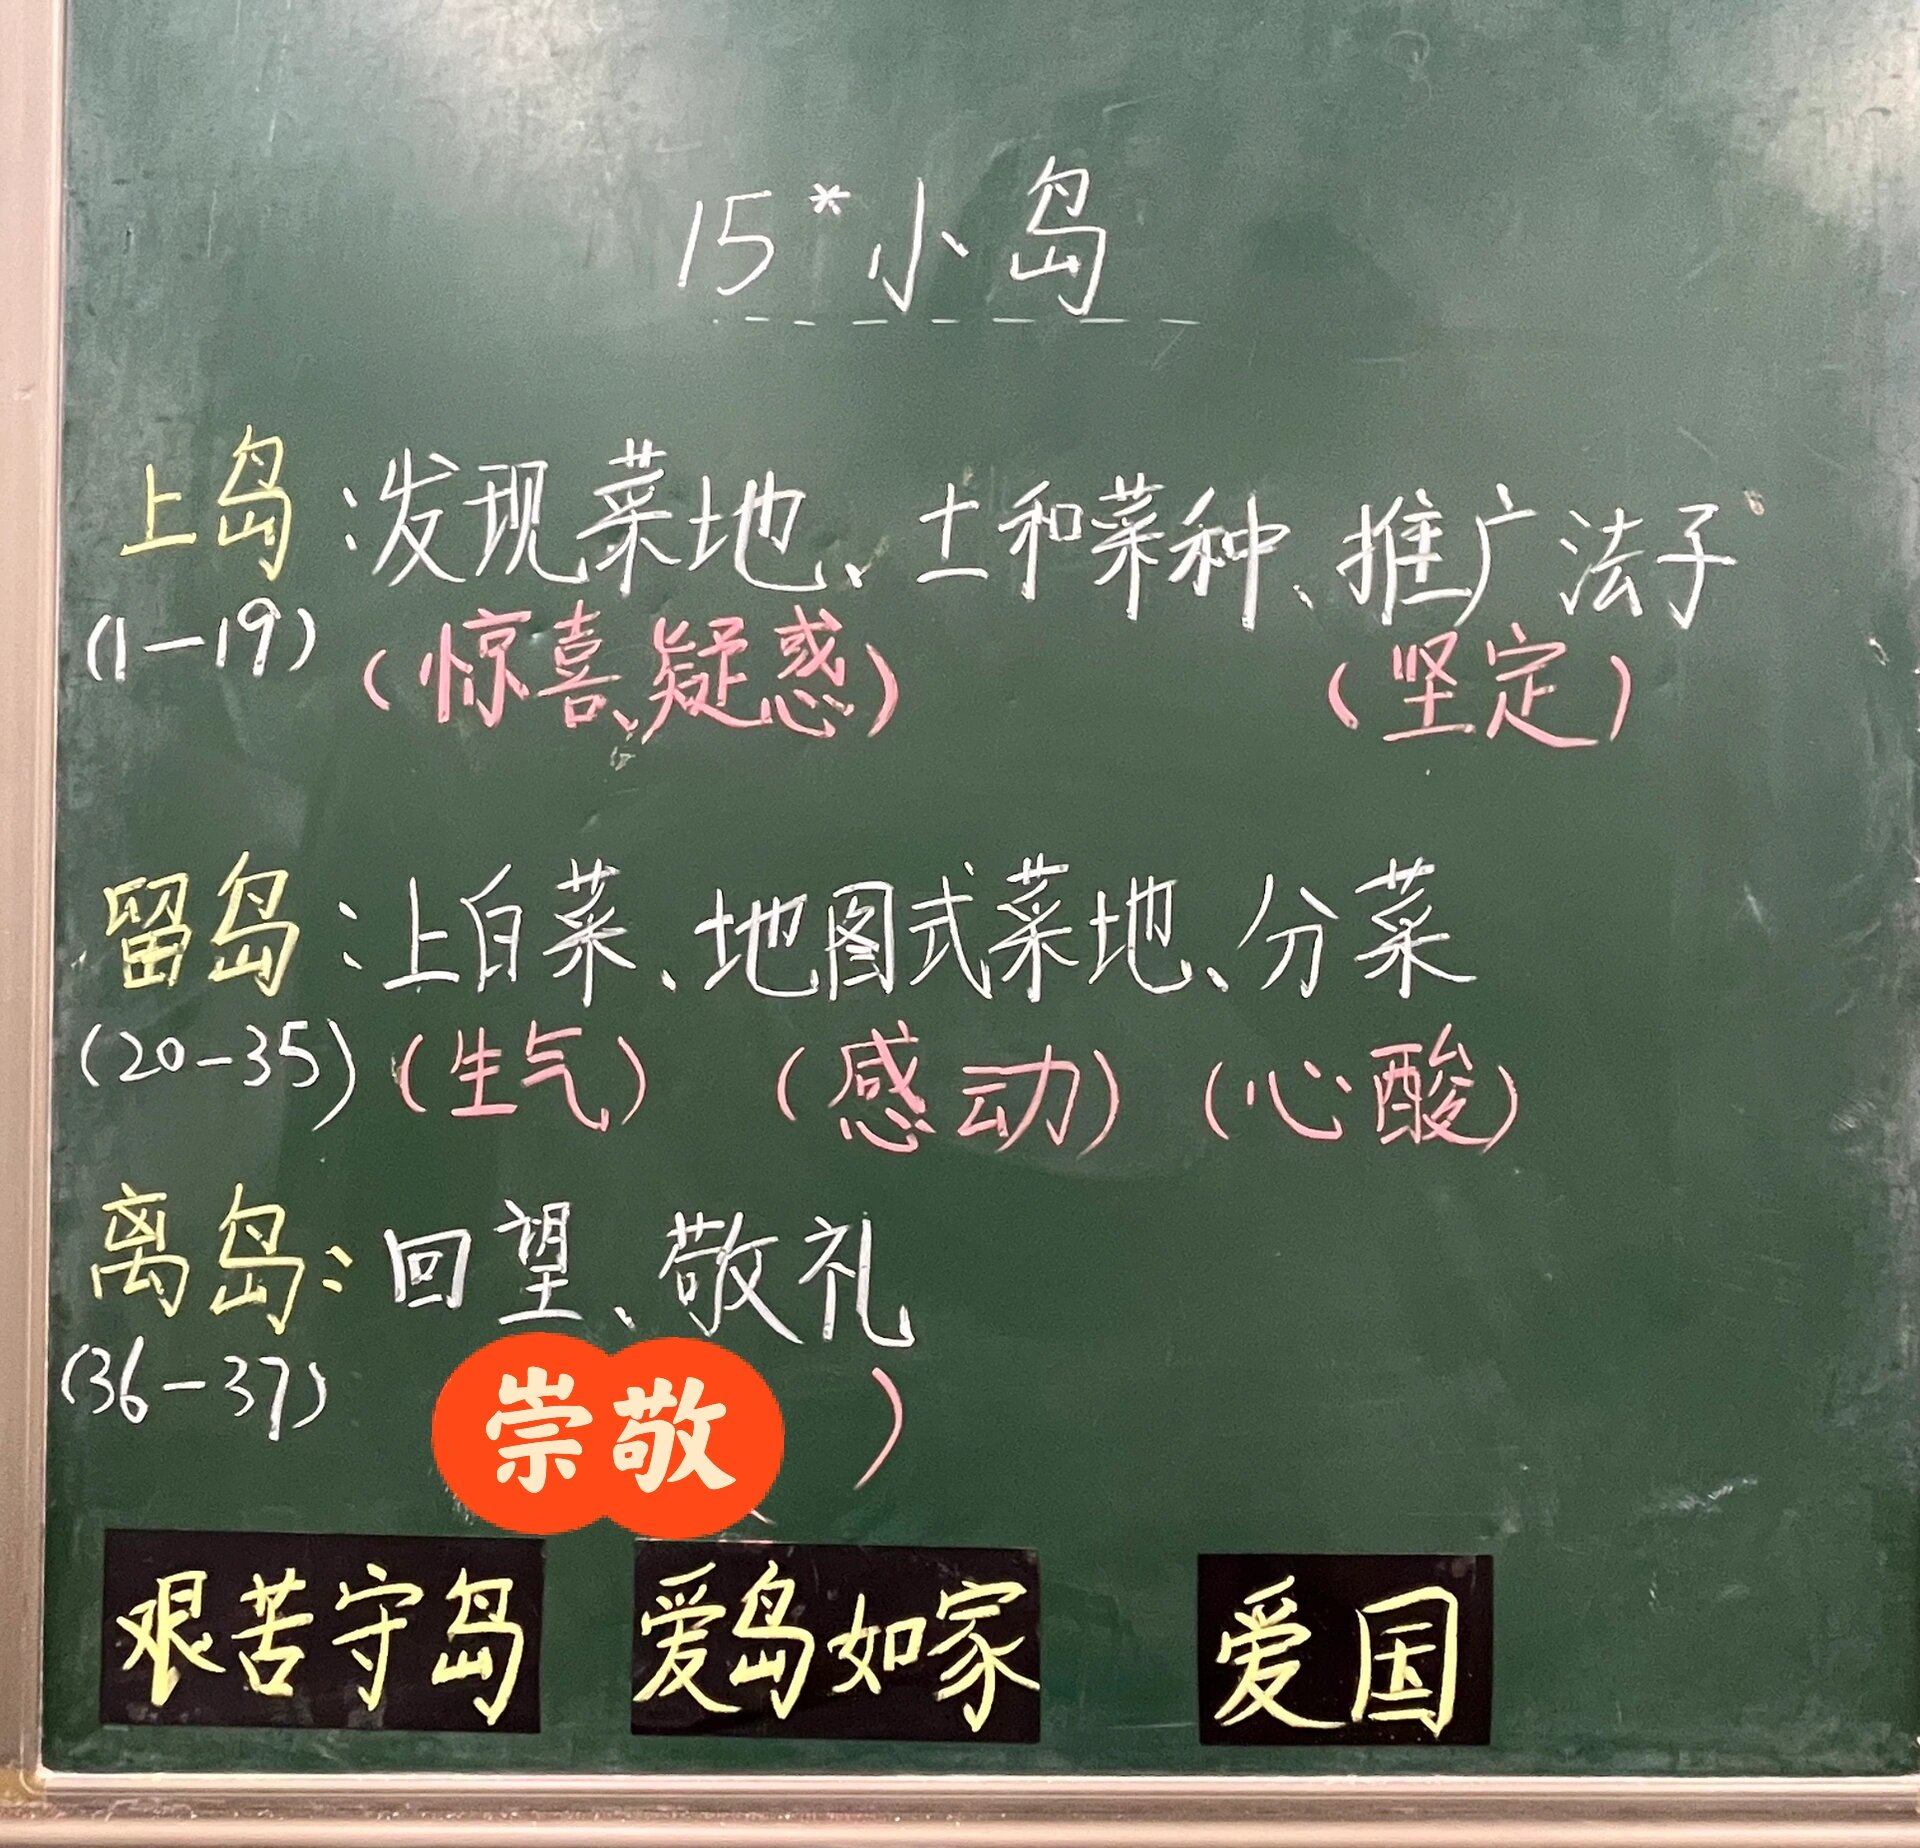 15*小岛
上岛：发现菜地、土和菜种、推广法子
(1—19) (惊喜、疑惑) (坚定)
留岛：上白菜、地图式菜地、分菜
(20—35) (生气) (感动) (心酸)
离岛：回望、敬礼
(36—37) 崇敬 )
艰苦守岛 爱岛如家 爱国